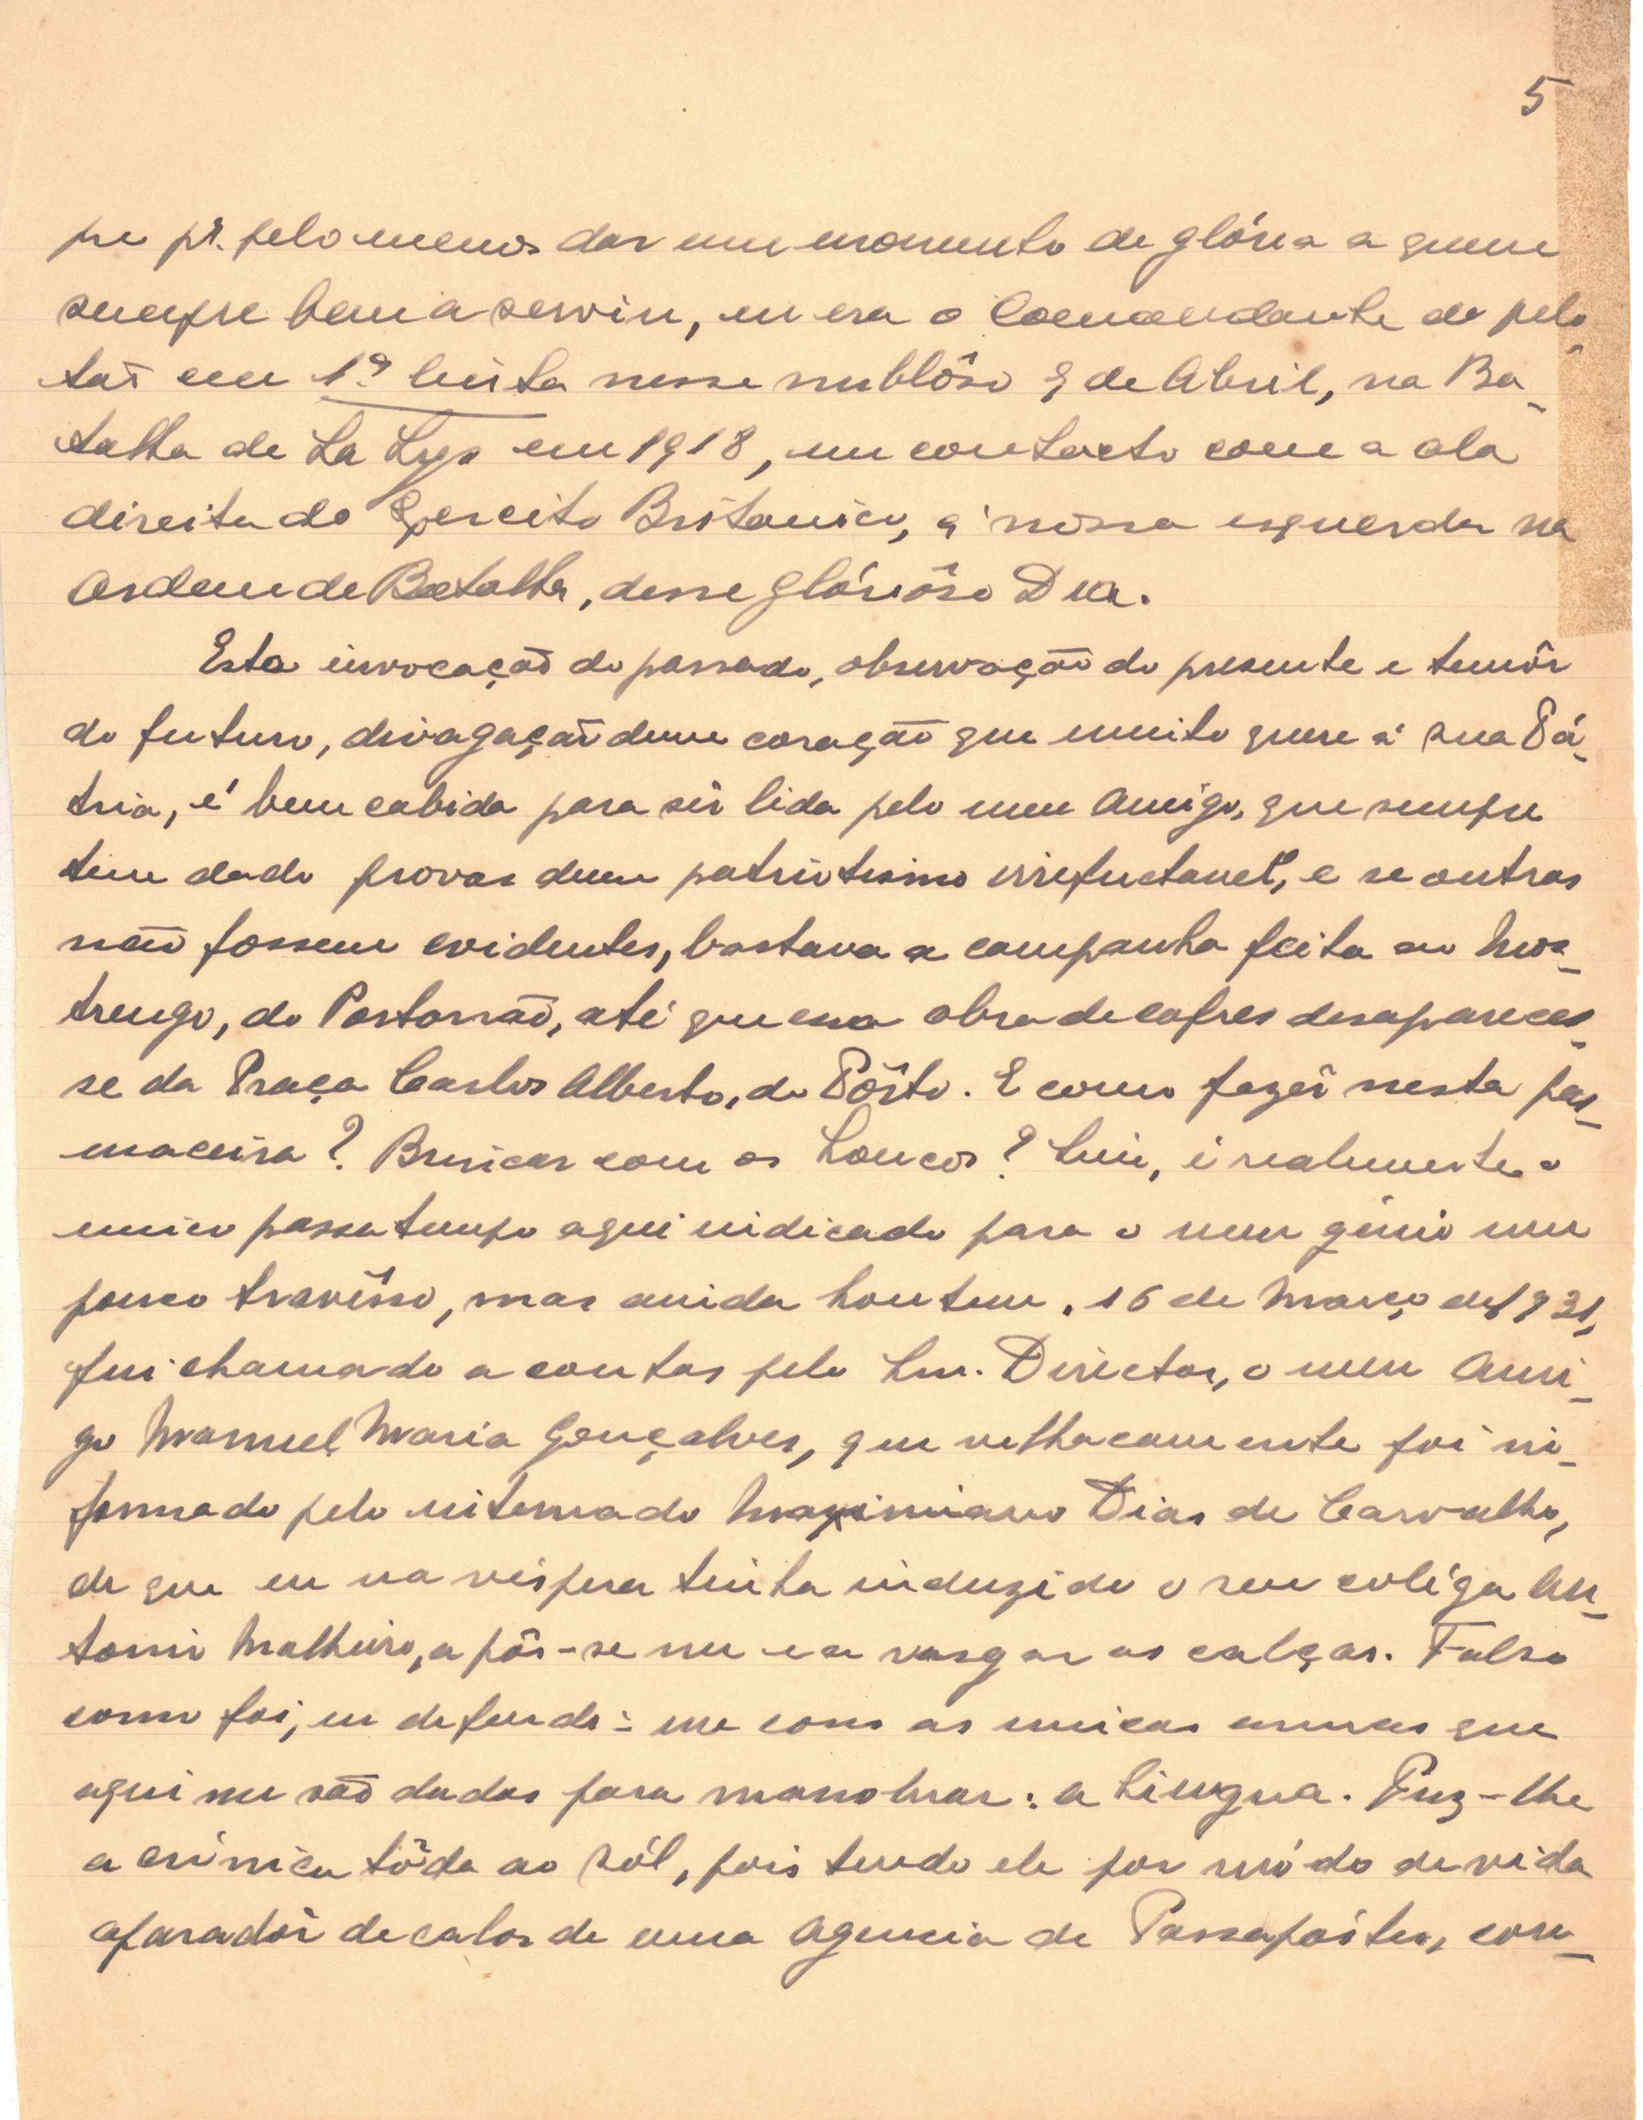 5
pre pr. pelo menos dar um momento de glória a quem
sempre bem a serviu, eu era o Comandante do pelo-
taõ em 1ª linha nesse nublôso 9 de Abril, na Ba-
talha de La Lys em 1918, em contacto com a ala
direita do Exercito Britanico, á nossa esquerda na
Ordem de Batalha, desse glóriôso Dia.
Esta invocaçaõ do passado, observaçaõ do presente e temôr
do futuro, divagaçaõ dum coração que muito quere á sua Pá-
tria, é bem cabida para sêr lida pelo meu Amigo, que sempre
tem dado provas dum patriotismo irrefuctavel, e se outras
naõ fossem evidentes, bastava a campanha feita ao Mos-
trengo, do Pastorraõ, até que essa obra de cafres desapareces-
se da Praça Carlos Alberto, do Pôrto. E como fazêr nesta pas-
maceira? Brincar com os Loucos? Sim, é realmente o
unico passatempo aqui indicado para o meu génio um
pouco travêsso, mas ainda hontem, 16 de Março de 1931,
fui chamado a contas pelo Snr. Director, o meu Ami-
go Manuel Maria Gonçalves, que velhacamente foi in-
formado pelo internado Maximiano Dias de Carvalho,
de que eu na vespera tinha induzido o seu coléga An-
tonio Malheiro, a pôr-se nu e a rasgar as calças. Falso
como foi, eu defendi-me com as unicas armas que
aqui me saõ dadas para manobrar: a Lingua. Puz-lhe
a crónica tôda ao sól, pois tendo ele por módo de vida
aparadôr de calos de uma Agencia de Passapórtes, com-